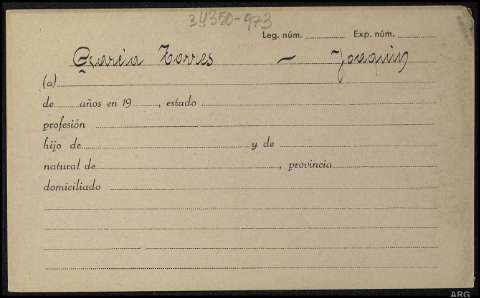 34350-973
Leg. núm. Exp. núm.
Garcia Torres - Joaquin
(a)
de años en 19 , estado
profesión
hijo de y de
natural de , provincia
domiciliado
ARG